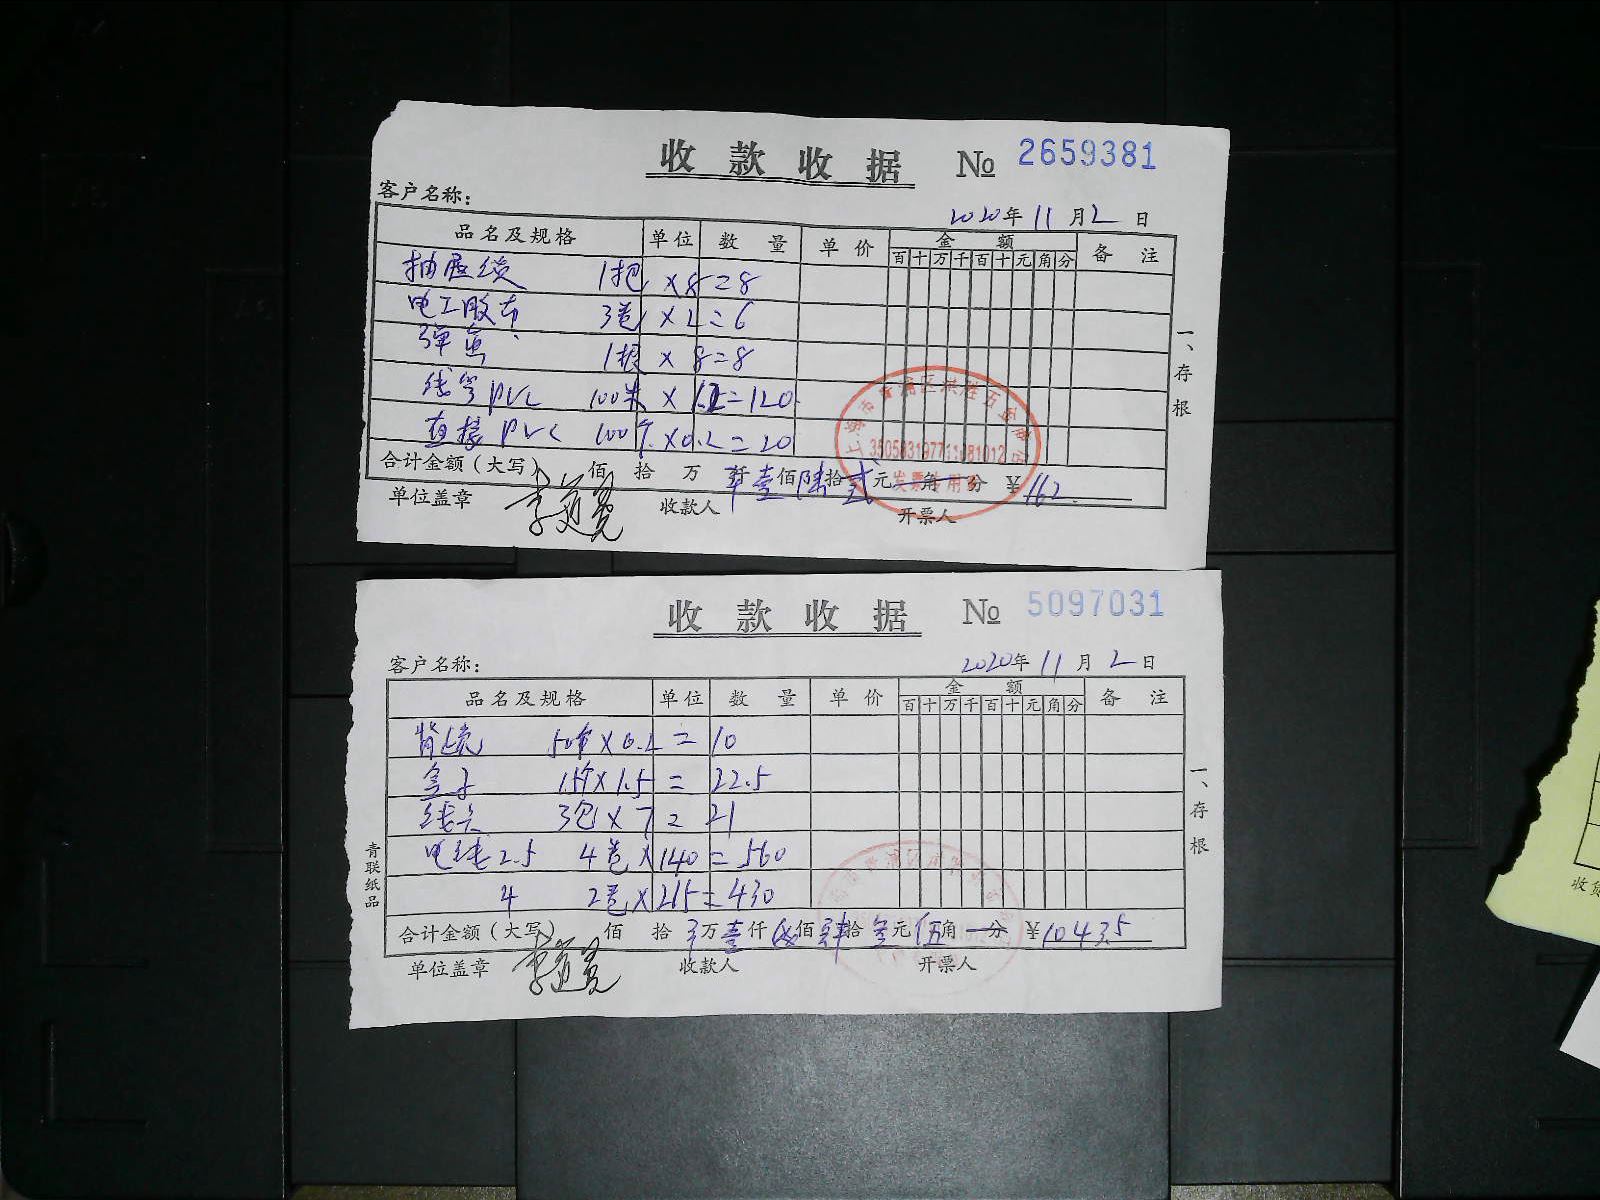 收款收据 № 2659381
客户名称：
2020年 11月2日
品名及规格 单位 数量 单价 金额 备注
百十万千百十元角分
1把 ×8=8
电工胶布 3卷 ×2=6
弹簧 1根 ×8=8
线管PVC 100米 ×1.2=120
直接PVC 100个 ×0.2=20
合计金额（大写） 佰 拾 万 仟壹佰陆拾贰元 角 分 ￥162
单位盖章 收款人 开票人
一、存根
上海市青浦区洪胜五金商店
发票专用章
收款收据 № 5097031
客户名称：
2020年 11月2日
品名及规格 单位 数量 单价 金额 备注
百十万千百十元角分
50个×0.2=10
盒子 15个×1.5=22.5
3包×7=21
电线2.5 4卷×140=560
4 2卷×215=430
合计金额（大写） 佰 拾 万壹仟 佰肆拾叁元伍角 分 ￥1043.5
单位盖章 收款人 开票人
一、存根
青联纸品
收货